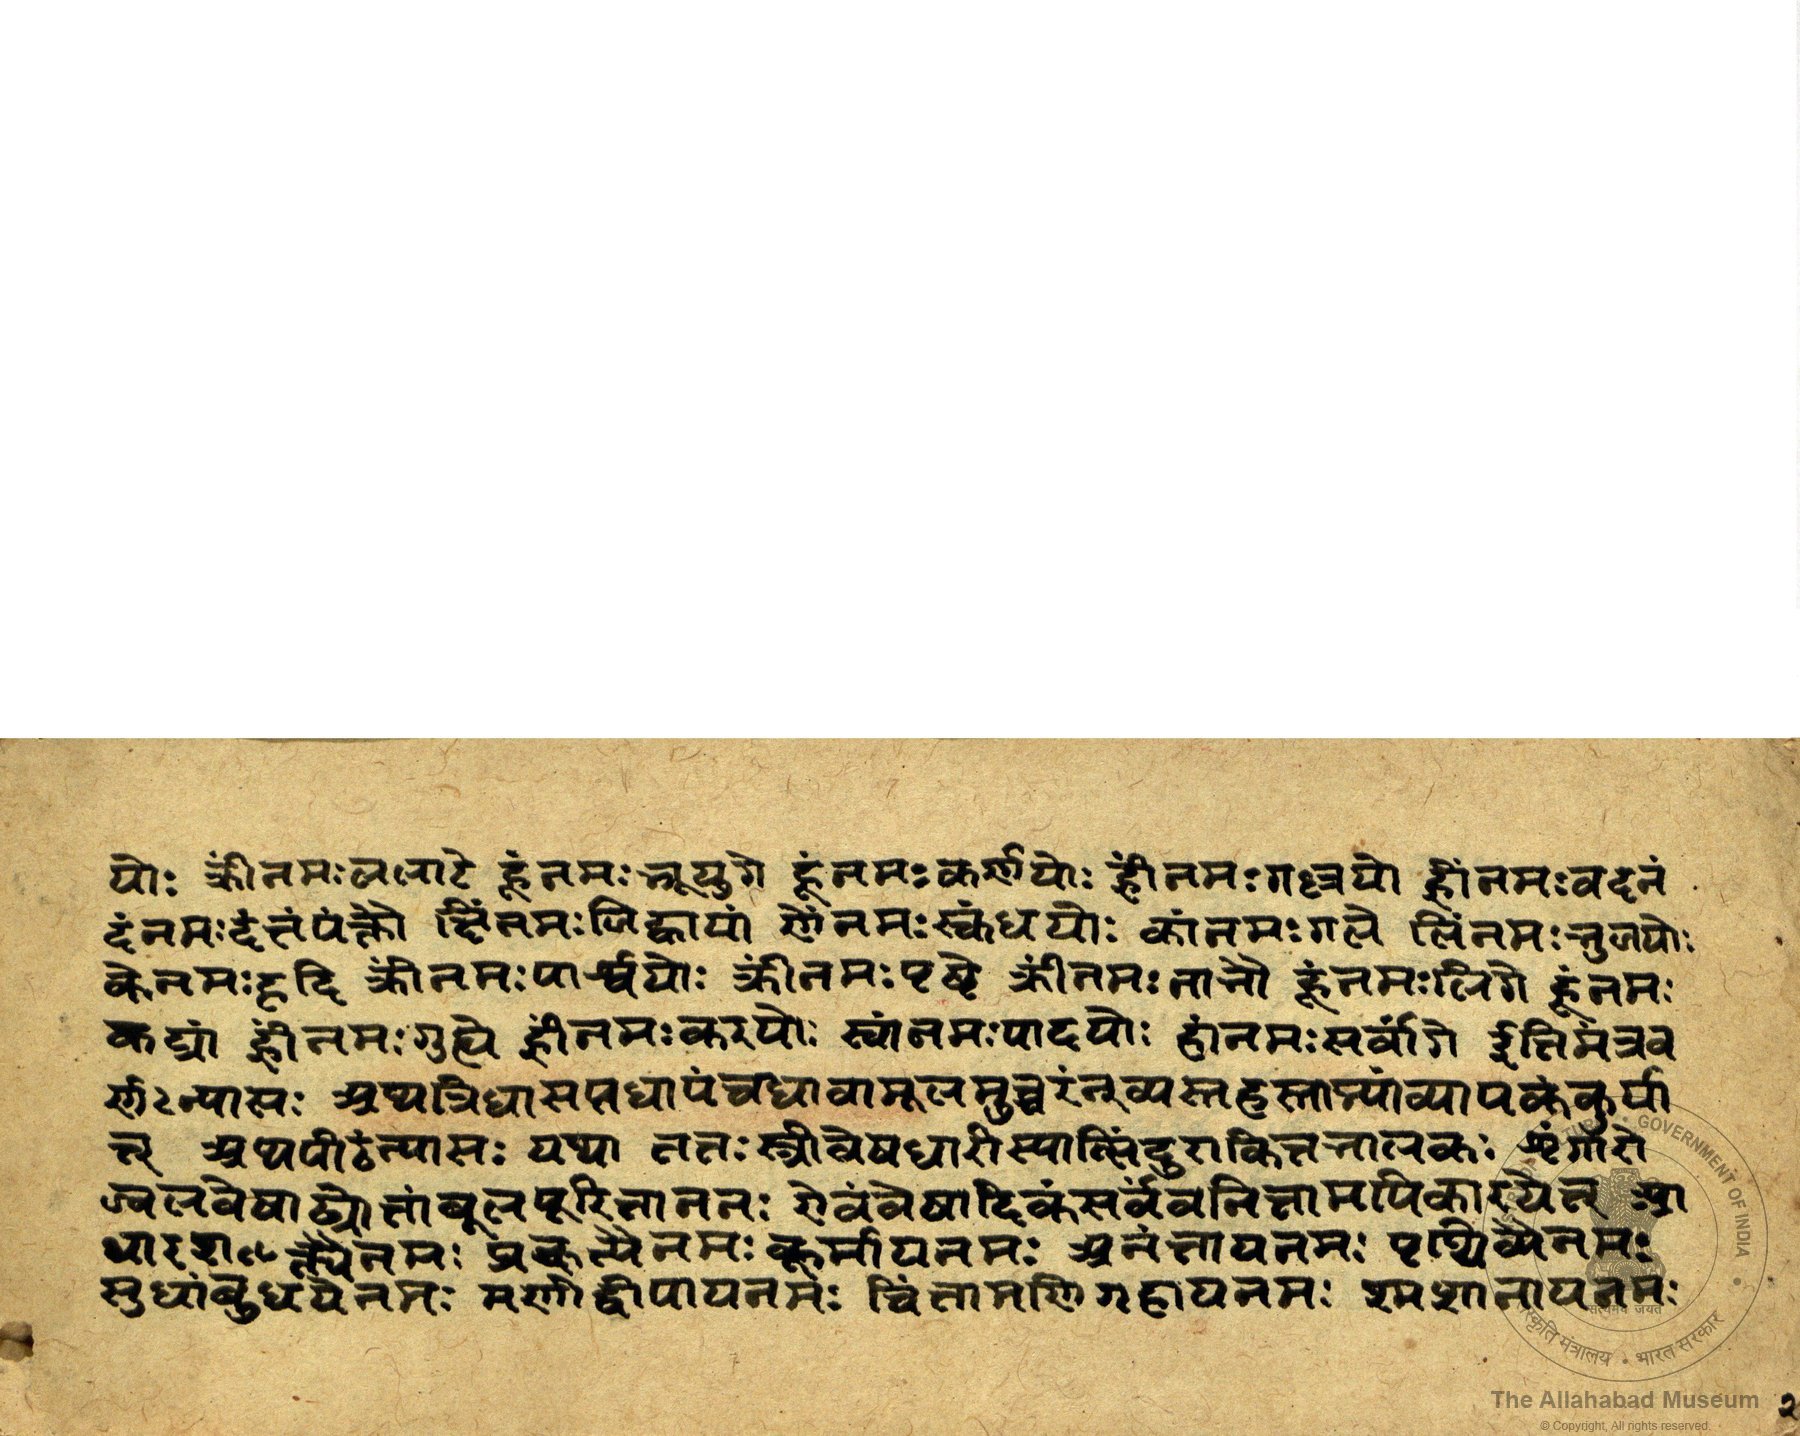 योः क्रींनमःललाटे हूंनमःभ्रूयुगे हूंनमःकर्णयोः ह्रींनमःगण्डयो ह्रींनमःवदनं
दंनमःदंतपंक्तौ क्षिंनमःजिह्वायां णेंनमःस्कंधयोः कांनमःगले लिंनमःभुजयोः
केनमःहृदि क्रींनमःपार्श्वयोः क्रींनमःपृष्ठे क्रींनमःनाभौ हूंनमःलिंगे हूंनमः
कट्यां ह्रींनमःगुह्ये ह्रींनमःकरयोः स्वांनमःपादयोः हांनमःसर्वांगे इतिमंत्रव
र्णन्यासः अथत्रिधासप्तधापंचधावामूलमुच्चरंन्व्यस्तहस्ताभ्यांव्यापकंकुर्या
त् अथपीठंन्यासः यथा ततःस्त्रीवेषधारीस्यात्सिंदुरांकितभालकः शृंगारो
ज्वलवेषाढ्योतांबूलपूरिताननः एवंवेषादिकंसर्वंवनितामपिकारयेत् आ
धारशक्त्यैनमः प्रकृत्यैनमः कूर्मायनमः अनंतायनमः पृथिव्यैनमः
सुधांबुधयेनमः मणीद्वीपायनमः चिंतामणिगृहायनमः श्मशानायनमः
GOVERNMENT OF INDIA
सत्यमेव जयते
संस्कृति मंत्रालय • भारत सरकार
The Allahabad Museum
© Copyright, All rights reserved.
२